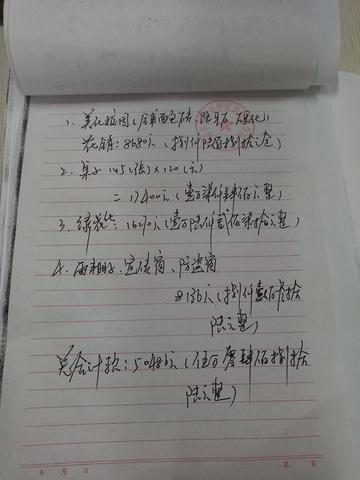 1、美化校园(铺面包砖、路牙石、绿化)
花销:8680元(捌仟陆佰捌拾元整)
2、桌子145(张)×120(元)
=17400元(壹万柒仟肆佰元整)
3、16270元(壹万陆仟贰佰柒拾元整)
4、宣传窗、防盗窗
8136元(捌仟壹佰叁拾
陆元整)
总合计款:50486元(伍万零肆佰捌拾
陆元整)
年 月 日 第 页